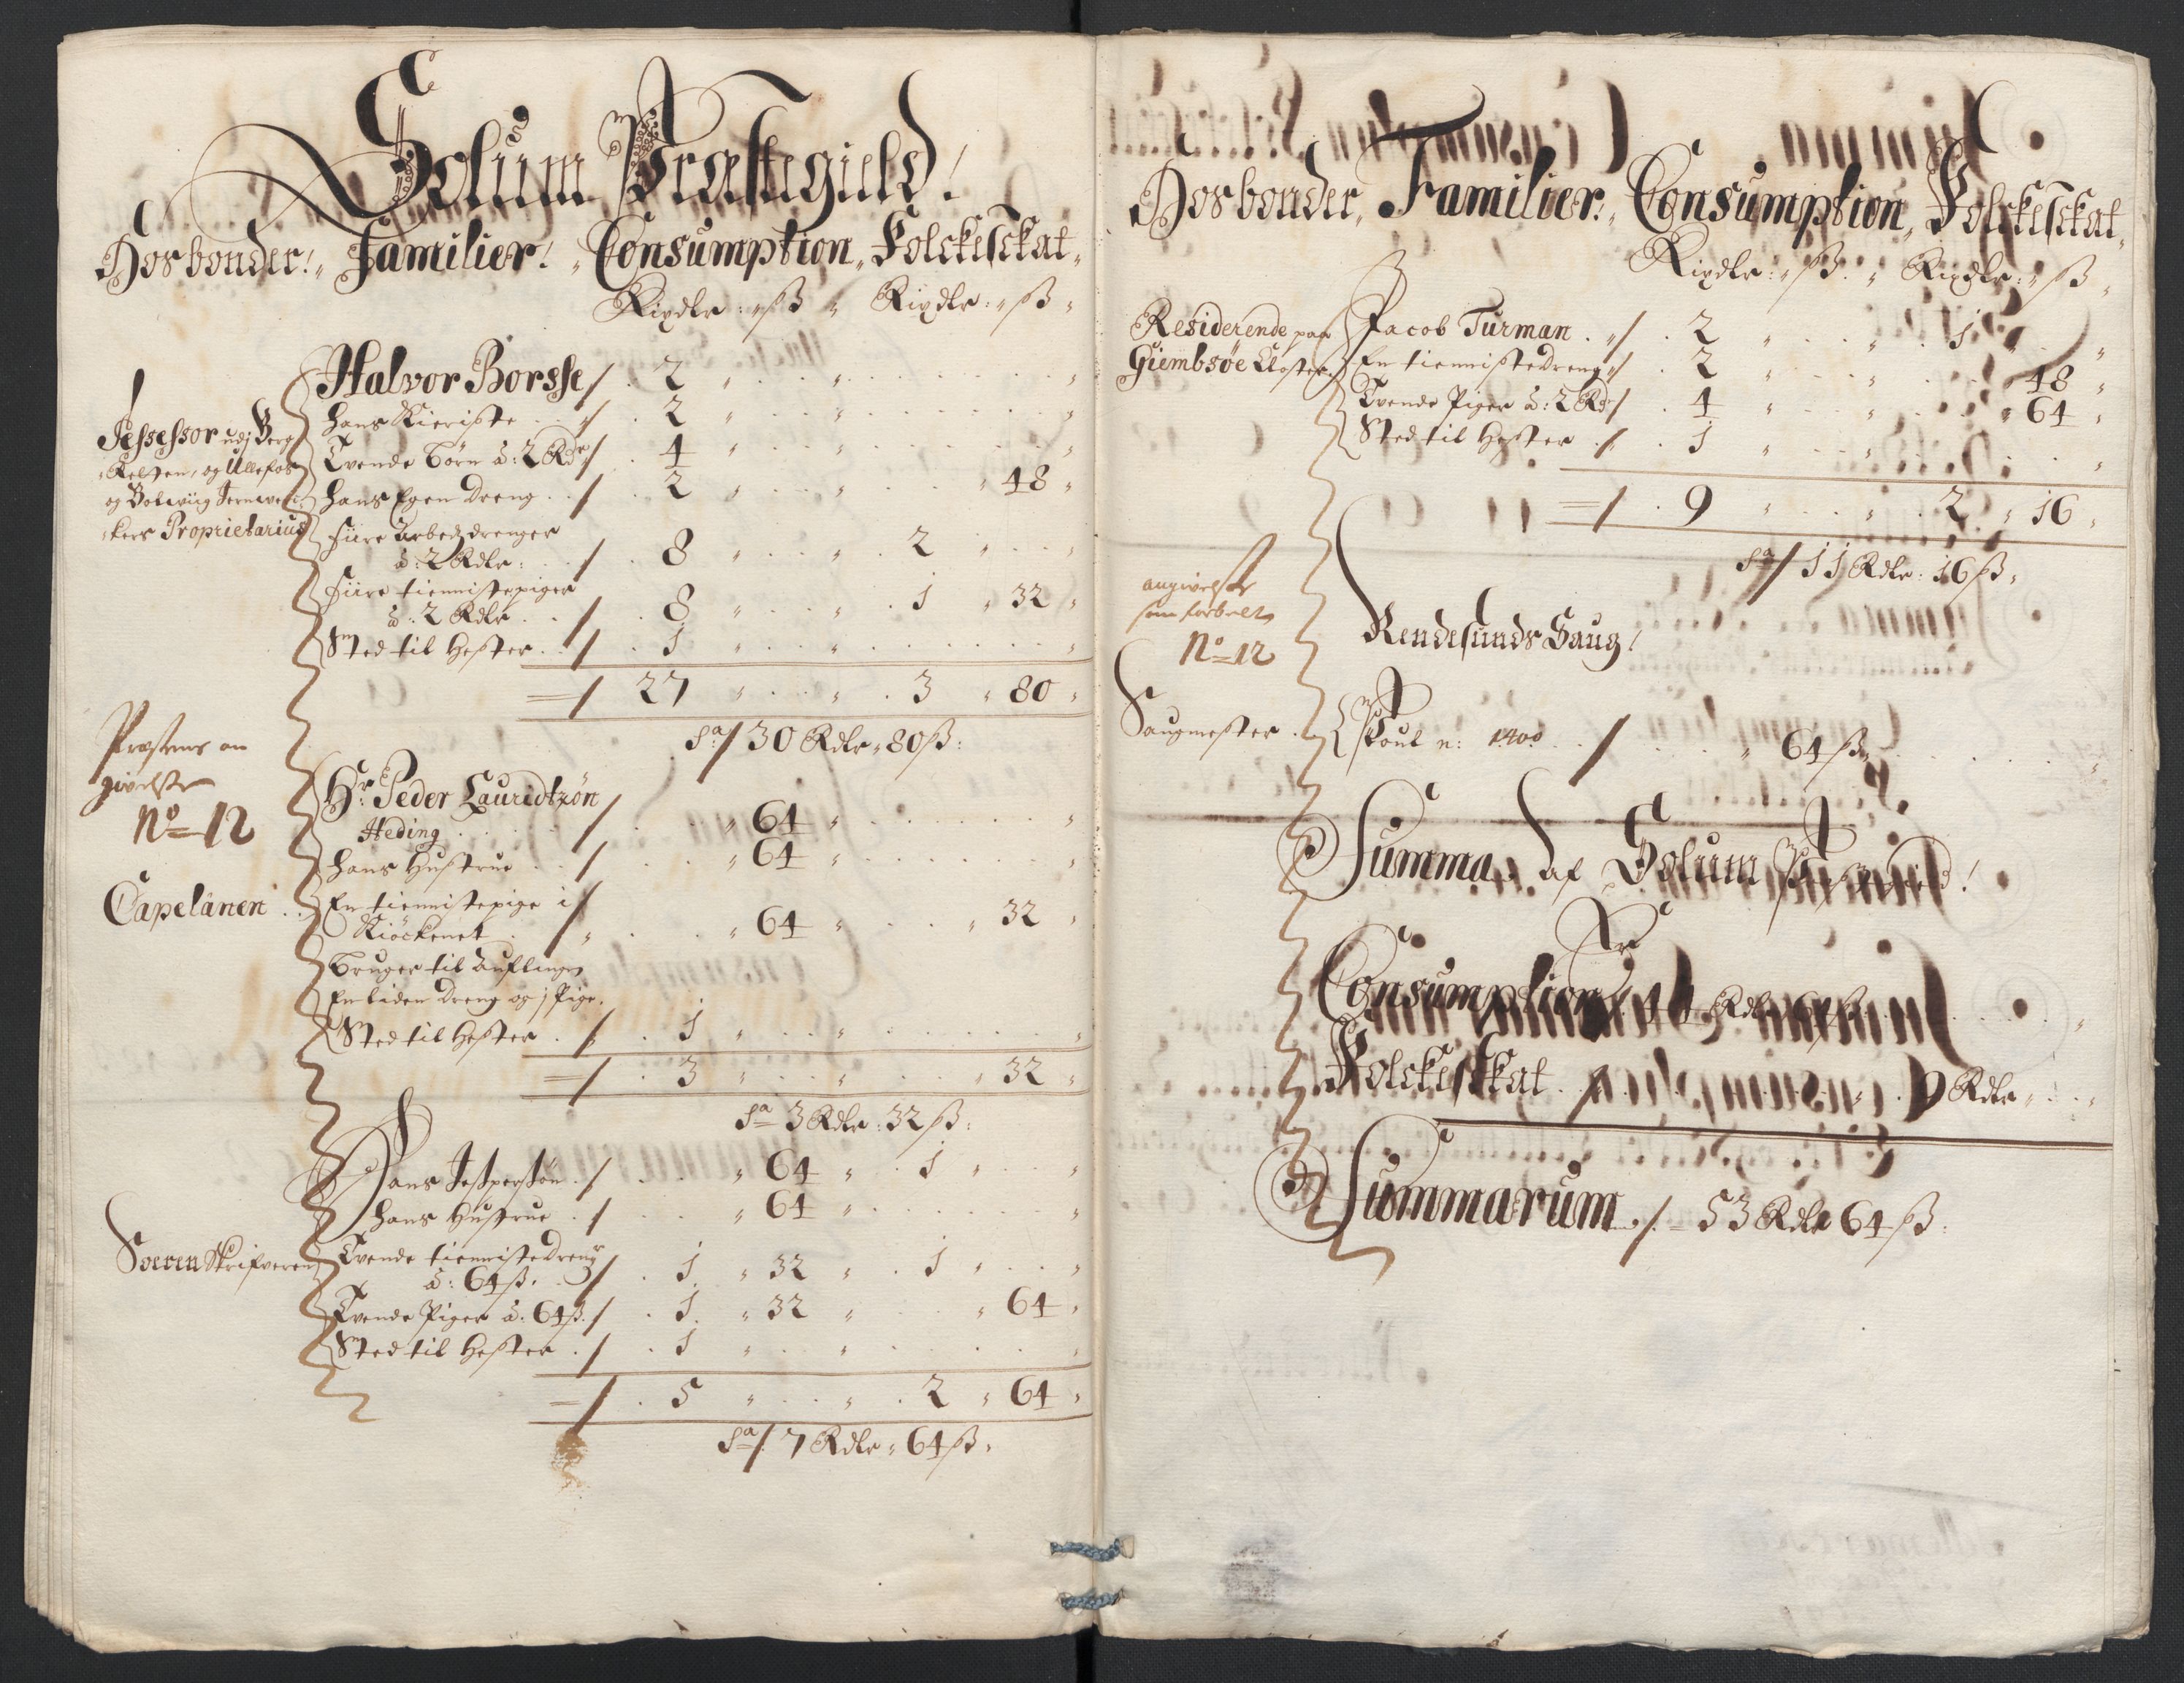 Solum Præstegield!
Hosbonder! „ Familier! „ Consumption „ Folckeskat „
Rixdlr : „ ß „ Rixdlr : „ ß „
Halvor Borsse / . 2 „ . . „ . . „
Hans Kieriste . „/ . 2 „ . . „ . . „
Assessor udj Berg
Tvende Börn â: 2 Rdr / . 4 „ . . „ . . „
og Ullefos
Hans Egen Dreng . . / . 2 „ . . „ . . „ 48 „
og Bolwiig Jernwer-
kers Proprietarius
fiire Arbedzdrenger
â: 2 Rdlr: . . / . 8 „ . . „ . 2 „ . . „
fiire tienniste piger
â: 2 Rdlr . . / . 8 „ . . „ . 1 „ 32 „
Sted til Hester . . / . 1 „ . . „ . . „
= / 27 „ . . „ . 3 „ 80 „
Sa / 30 Rdlr „ 80 ß:
Præstens an
givelse
No = 12
Hr. Peder Lauridtzön
Heding . . / . . „ 64 „ . . „
Hans Hustrue . . / . . „ 64 „ . . „
Capelanen . .
En tienniste pige i
Kiöckenet . / „ . . „ 64 „ . . „ 32 „
Bruger til Auflingen
En liden Dreng og 1 Pige.
Sted til Hester . / . 1 „ . . „ . . „
= / . 3 „ . . „ . . „ 32 „
Sa 3 Rdlr : 32 ß:
Hans Jesperßön . / . . „ 64 „ . 1 „ . . „
Hans Hustrue . / . . „ 64 „ . . „
Soeren Skrifveren
Tvende tienniste Drenge
â: 64 ß. . / . 1 „ 32 „ . 1 „ . . „
Tvende Piger â: 64 ß. / . 1 „ 32 „ . . „ 64 „
Sted til Hester . / . 1 „ . . „ . . „
= / . 5 „ . . „ . 2 „ 64 „
Sa / 7 Rdlr „ 64 ß „
Hosbonder „ Familier! „ Consumption „ Folckeskat „
Rixdlr : „ ß . „ Rixdlr : „ ß „
Residerende paa Jacob Turman . „/ . 2 „ . . „ . 1 „ . . „
Giembsöe Closter En tienniste Dreng „/ . 2 „ . . „ . . 48 „
Tvende Piger â: 2 Rdr / . 4 „ . . „ . . „ 64 „
Sted til Hester . / . 1 „ . . „ . . „
= / . 9 „ . . „ . 2 „ 16 „
Sa / 11 Rdlr : 16 ß „
angivelse
No = 12
Rendesunds Saug!
Saugmester . Poul n: . . / . . „ 64 ß „ . . „
Summa af Solum
Er
Consumption
Folckeskat . / . . „ . 9 Rdlr „ . . „
Summarum . / . 53 Rdlr 64 ß .